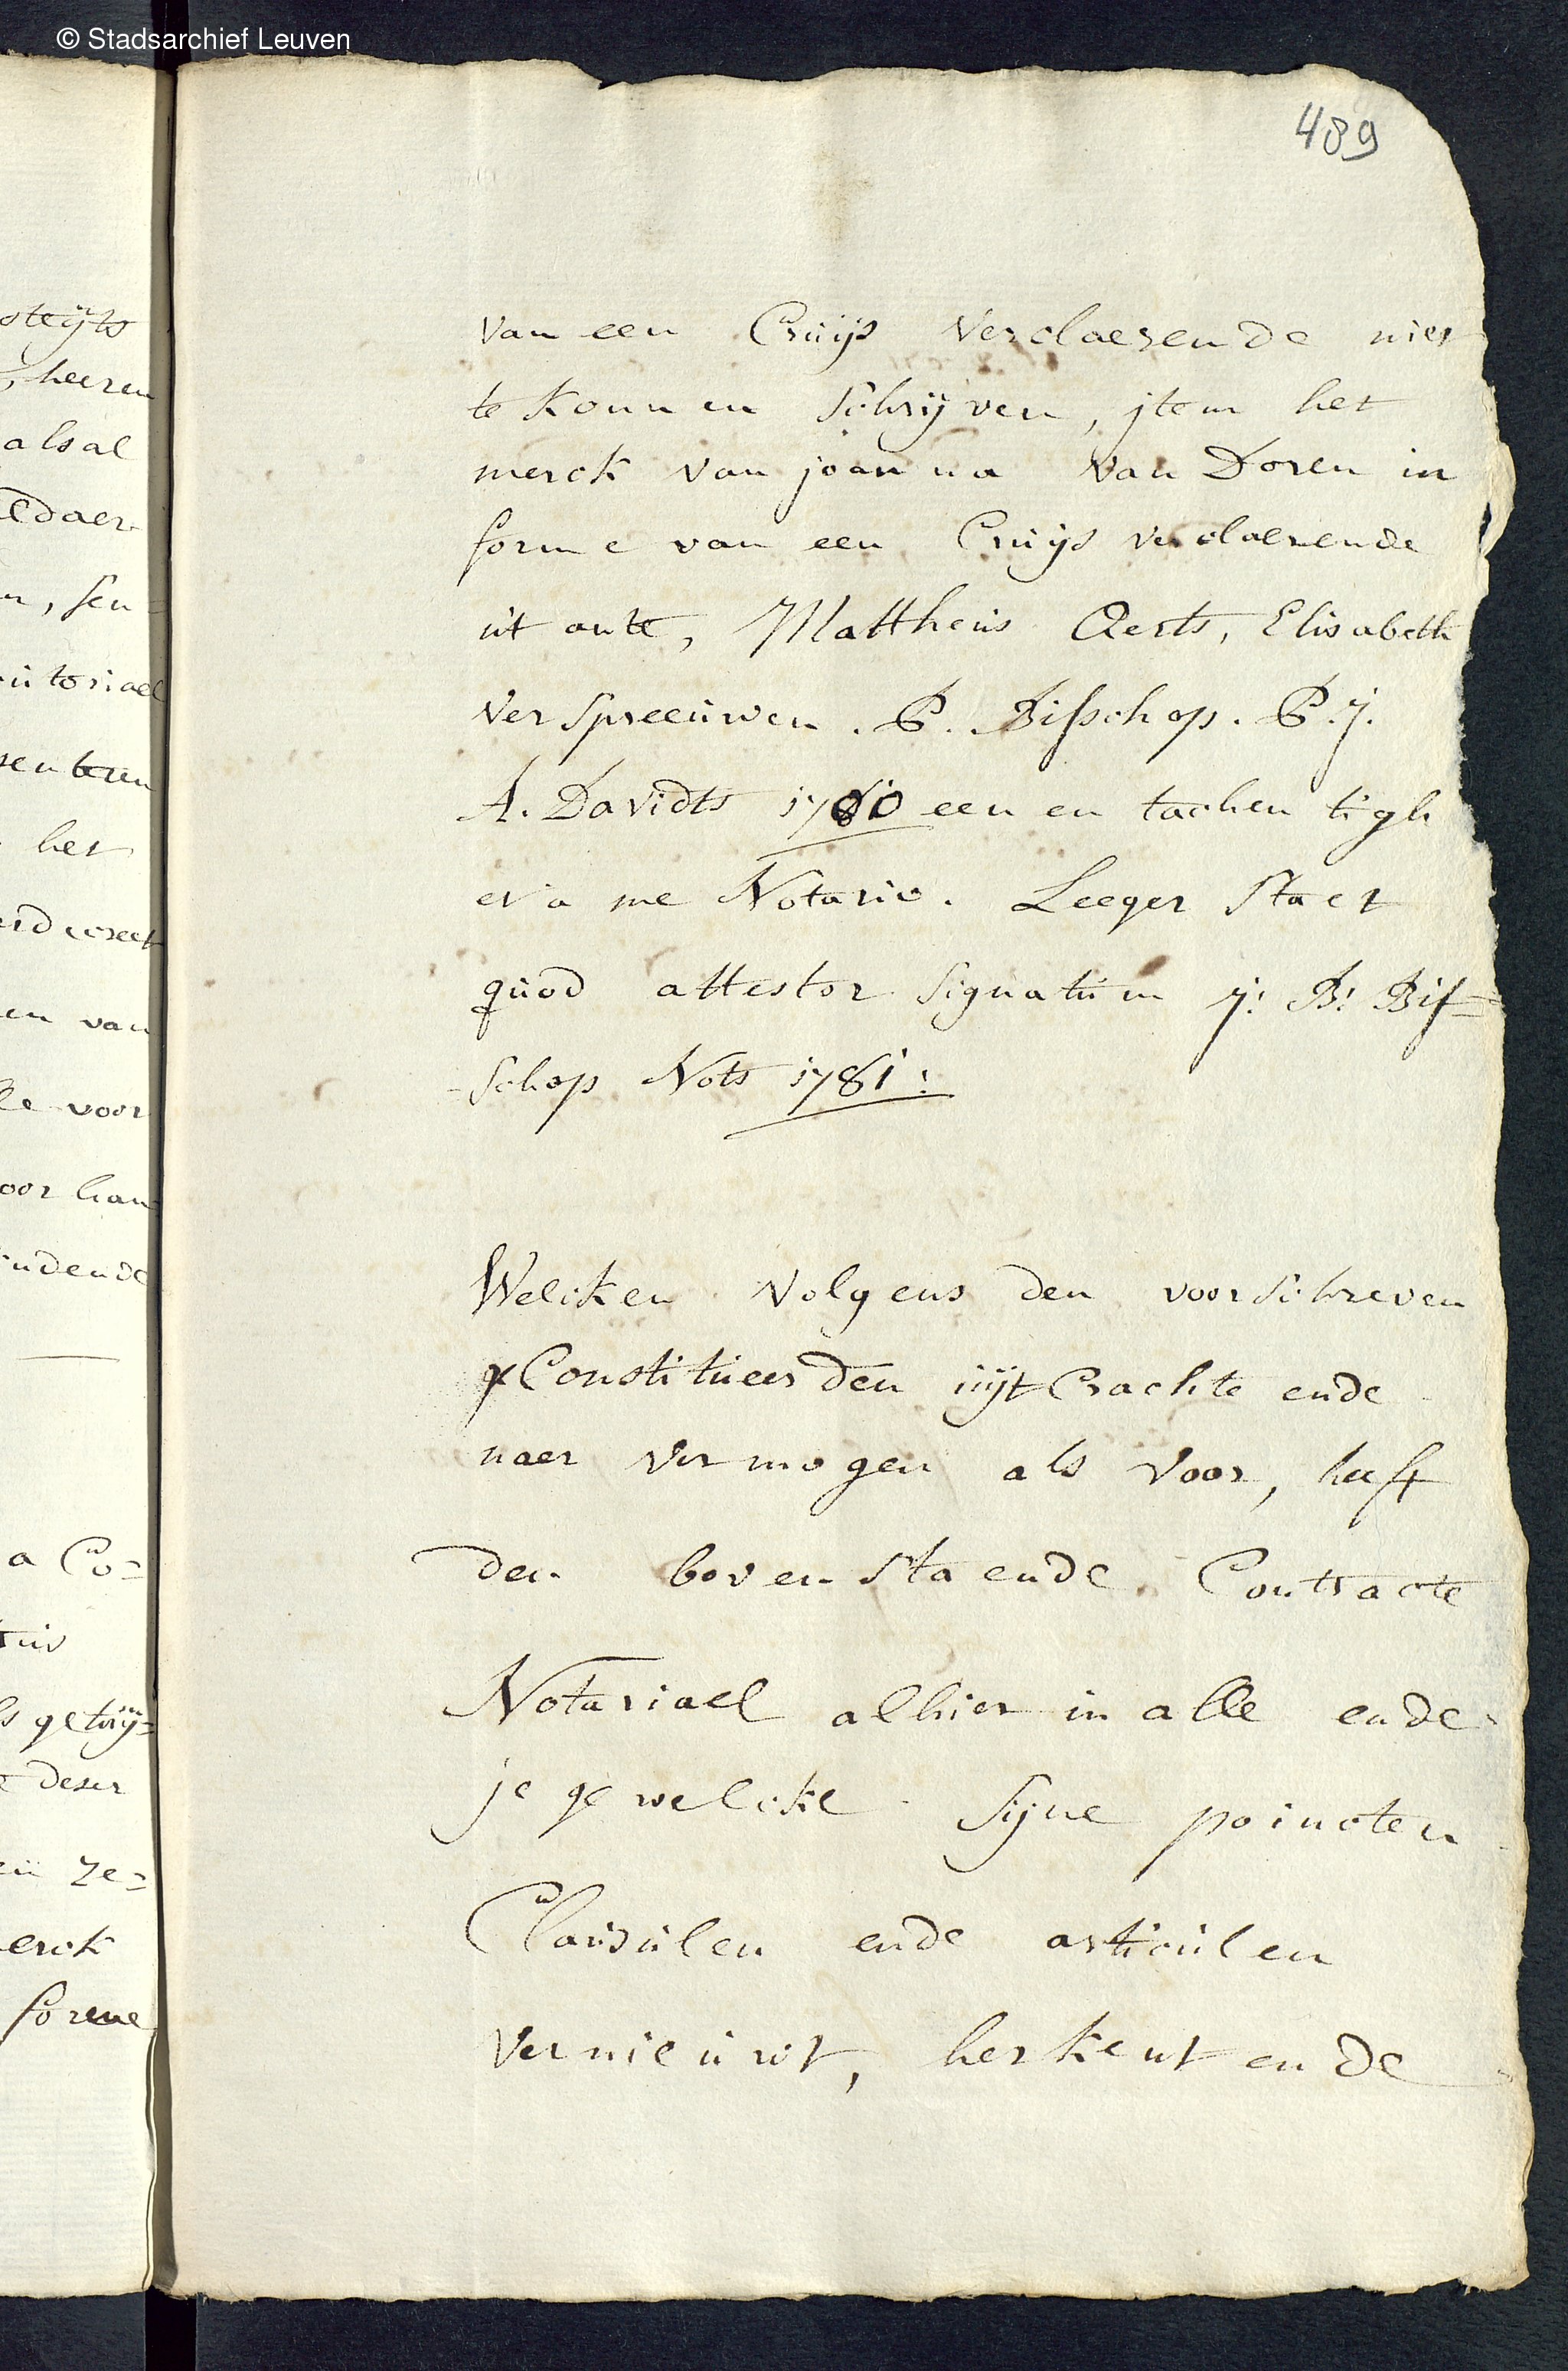 © Stadsarchief Leuven
489
van een Cruijs verclaerende niet
te konnen schrijven, jtem het
merck van joanna van Doren in
forme van een Cruijs verclaerende
ut ante, Mattheus Aerts, Elisabeth
verspreeuwen. P. Bisschop. P. j.
A. Davidts 1780 een en tachentigh
et a me Notario. Leeger staet
quod attestor signatum j: B: Bis=
schop Nots 1781:
Welcken volgens den voorschreven
geConstitueerden uijt Crachte ende
naer vermogen als voor, heeft
den bovenstaende Contracte
Notariael alhier in alle ende
jegewelcke sijne poincten
Clausulen ende articulen
vernieuwt, herkent ende
steijts
, heeren
alsal
ldaer
n, sen
utoriael
senteren
het
en van
le voor
oor han
indende
a Co=
tuis
s getuij=
deser
en Ze=
erck
forme